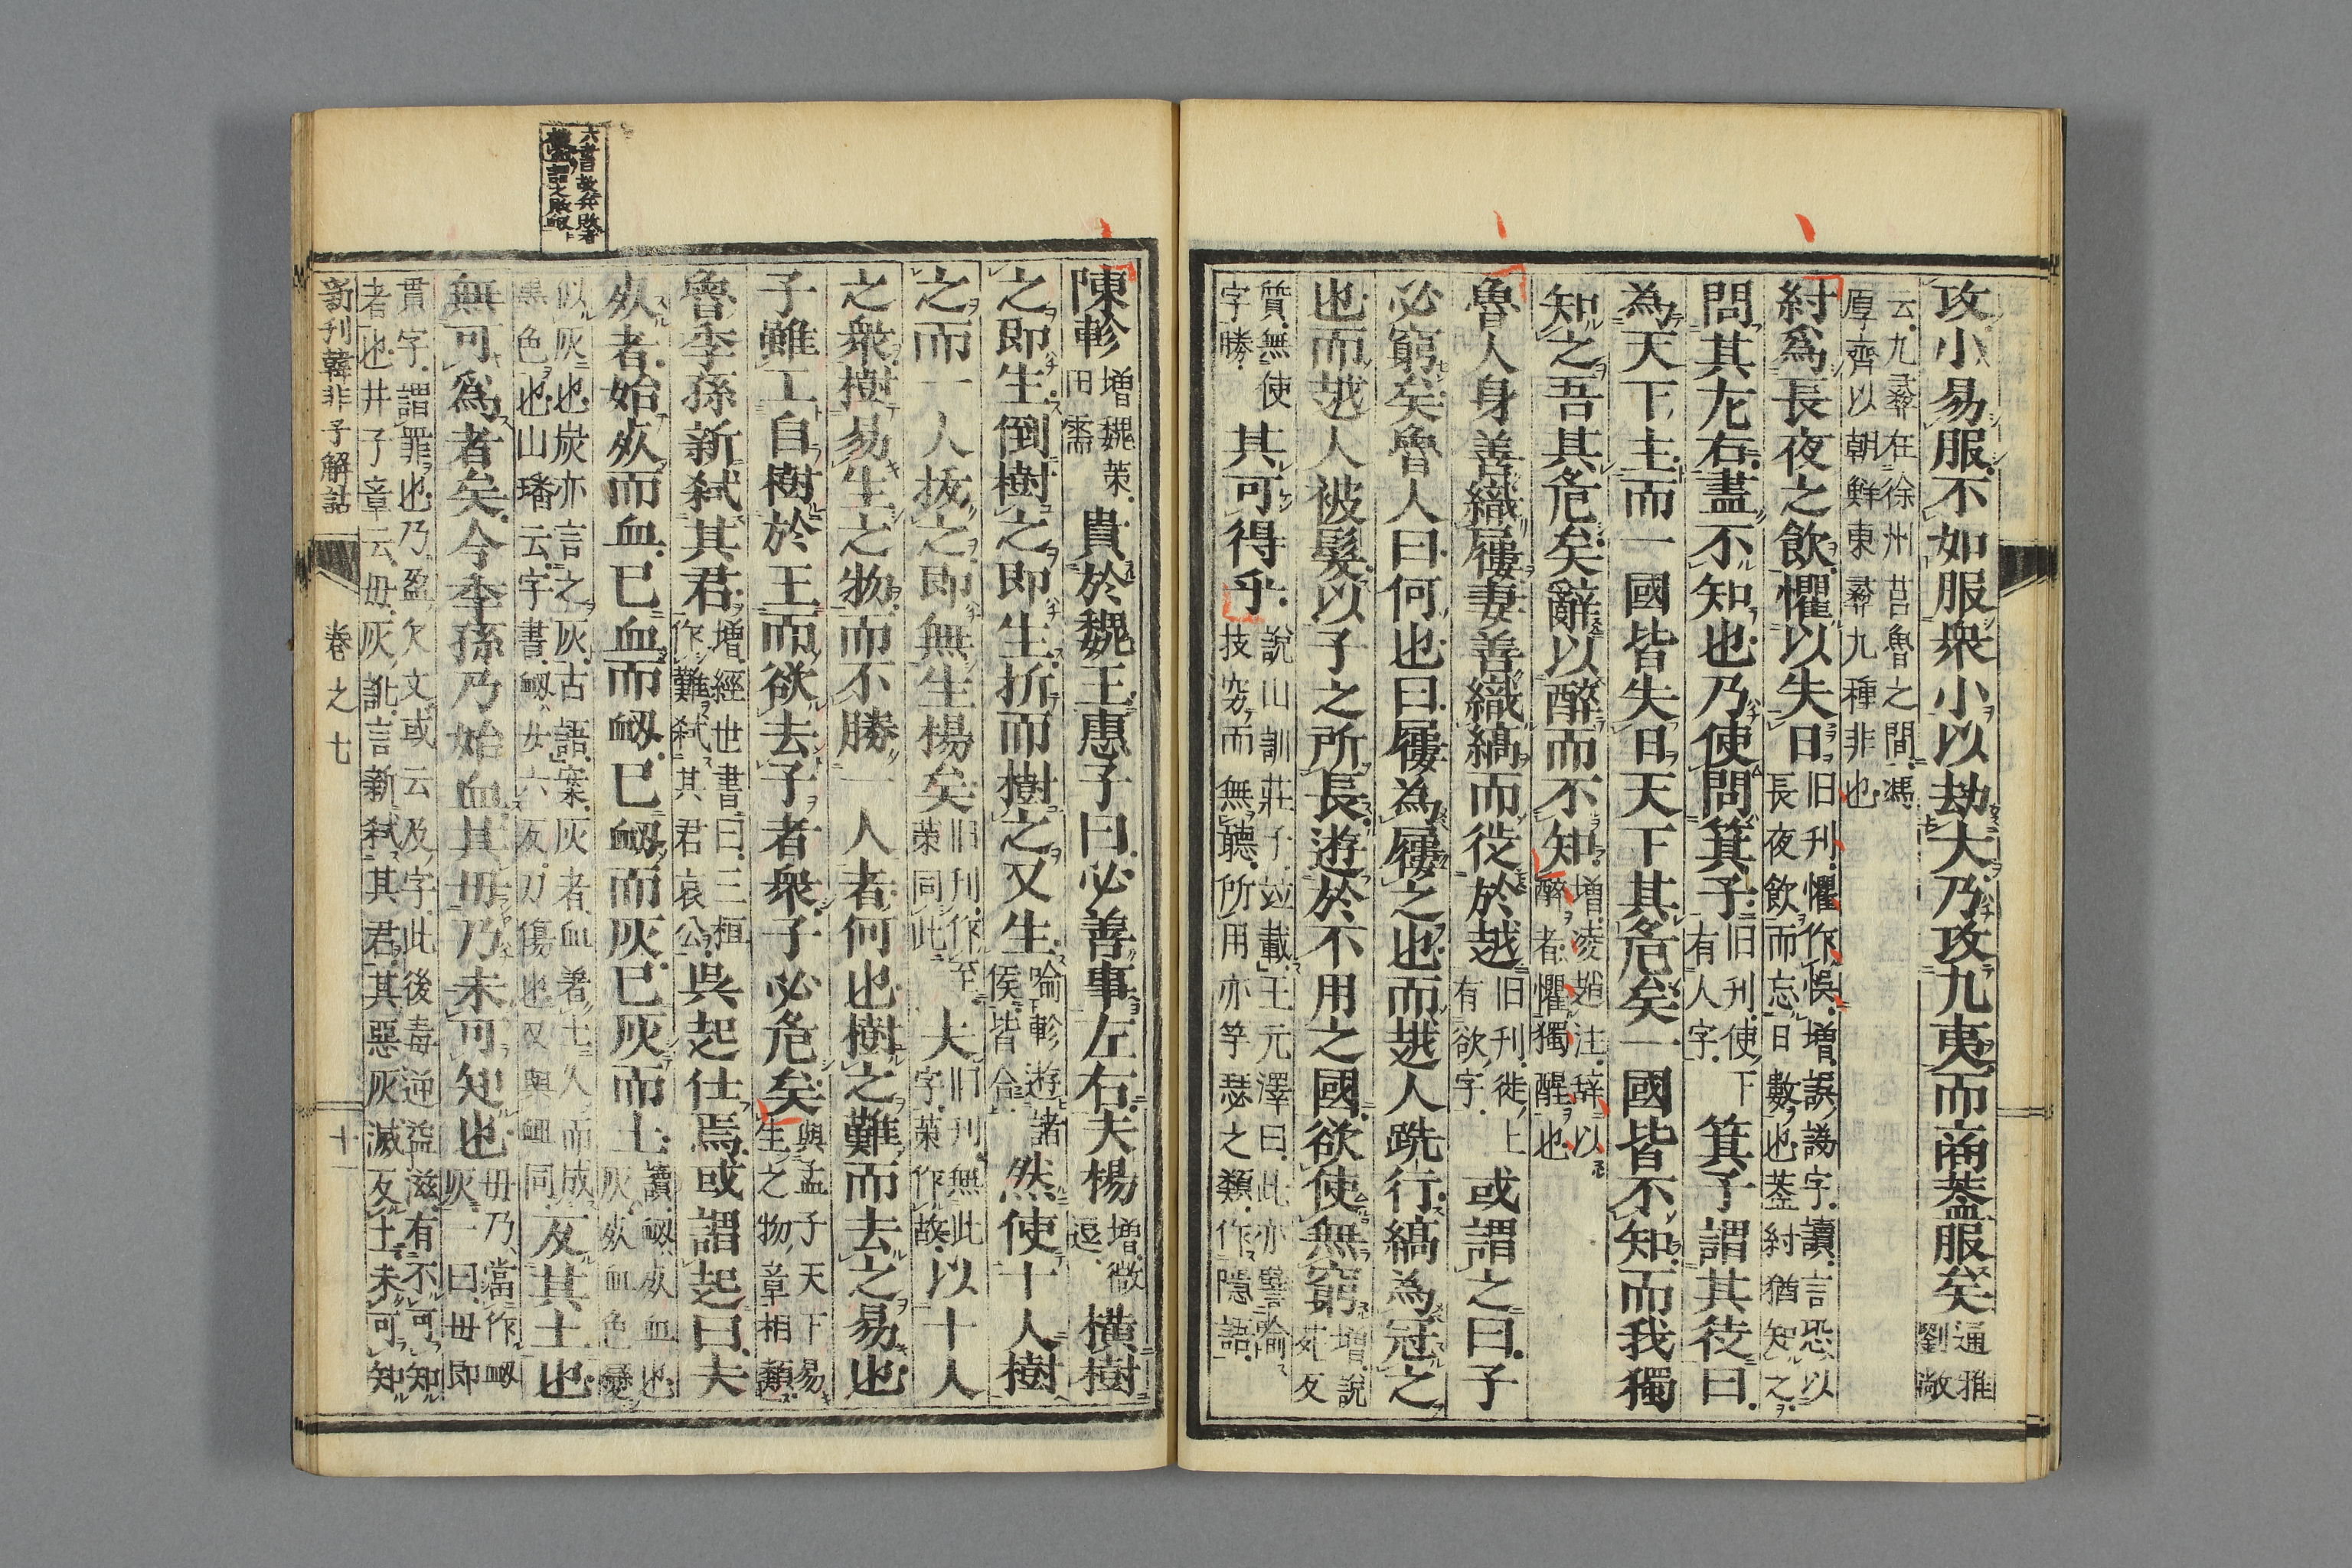 攻小易服不如服衆小以劫大乃攻九夷而商葢服矣通雅劉敞
云九彛在徐州莒魯之間馮
厚齊以朝鮮東彛九種非也
紂爲長夜之飲懼以失日旧刋懼作悞増誤譌字讀言恐以長夜飲而忘日數也葢紂猶知之
問其左右盡不知也乃使問箕子旧刋使下有人字箕子謂其徒曰
為天下主而一國皆失日天下其危矣一國皆不知而我獨
知之吾其危矣辭以醉而不知増凌趙注辞以醉者懼獨醒也
魯人身善織屨妻善織縞而徙於越旧刋徙上有欲字或謂之曰子
必窮矣魯人曰何也曰屨為屨之也而越人跣行縞為冠之
也而越人被髮以子之所長遊於不用之國欲使無窮増説苑反
質無使字勝其可得乎說山訓莊子竝載王元澤曰此亦譬喩技窮而無聽所用亦竽瑟之類作隠語
陳軫増魏策田需貴於魏王惠子曰必善事左右夫楊増徴遥横樹
之即生倒樹之即生折而樹之又生喩軫遊諸侯皆合然使十人樹
之而一人抜之即無生楊矣旧刋作至策同此夫旧刋無此字策作故以十人
之衆樹易生之物而不勝一人者何也樹之難而去之易也
子雖工自樹於王而欲去子者衆子必危矣與孟子天下易生之物章相類
魯季孫新弑其君増經世書曰三桓作難弑其君哀公吳起仕焉或謂起曰夫
死者始死而血已血而衂已衂而灰已灰而土讀衂死血也灰死血色變
似灰也炭亦言之灰古語案灰者血着土久而成
黒色也山璠云字書衂女六反刀傷也又與衄同反其土也
無可爲者矣今季孫乃始血其毋乃未可知也毋乃當作衂灰一曰毋即
貫字謂罪也乃盈欠文或云及字此後毒逆益滋有不可知
者也井子章云毋灰訛言新弑其君其惡灰滅反土未可知
新刋韓非子解詁 卷之七 十
六書故兵敗者
謂之敗衂